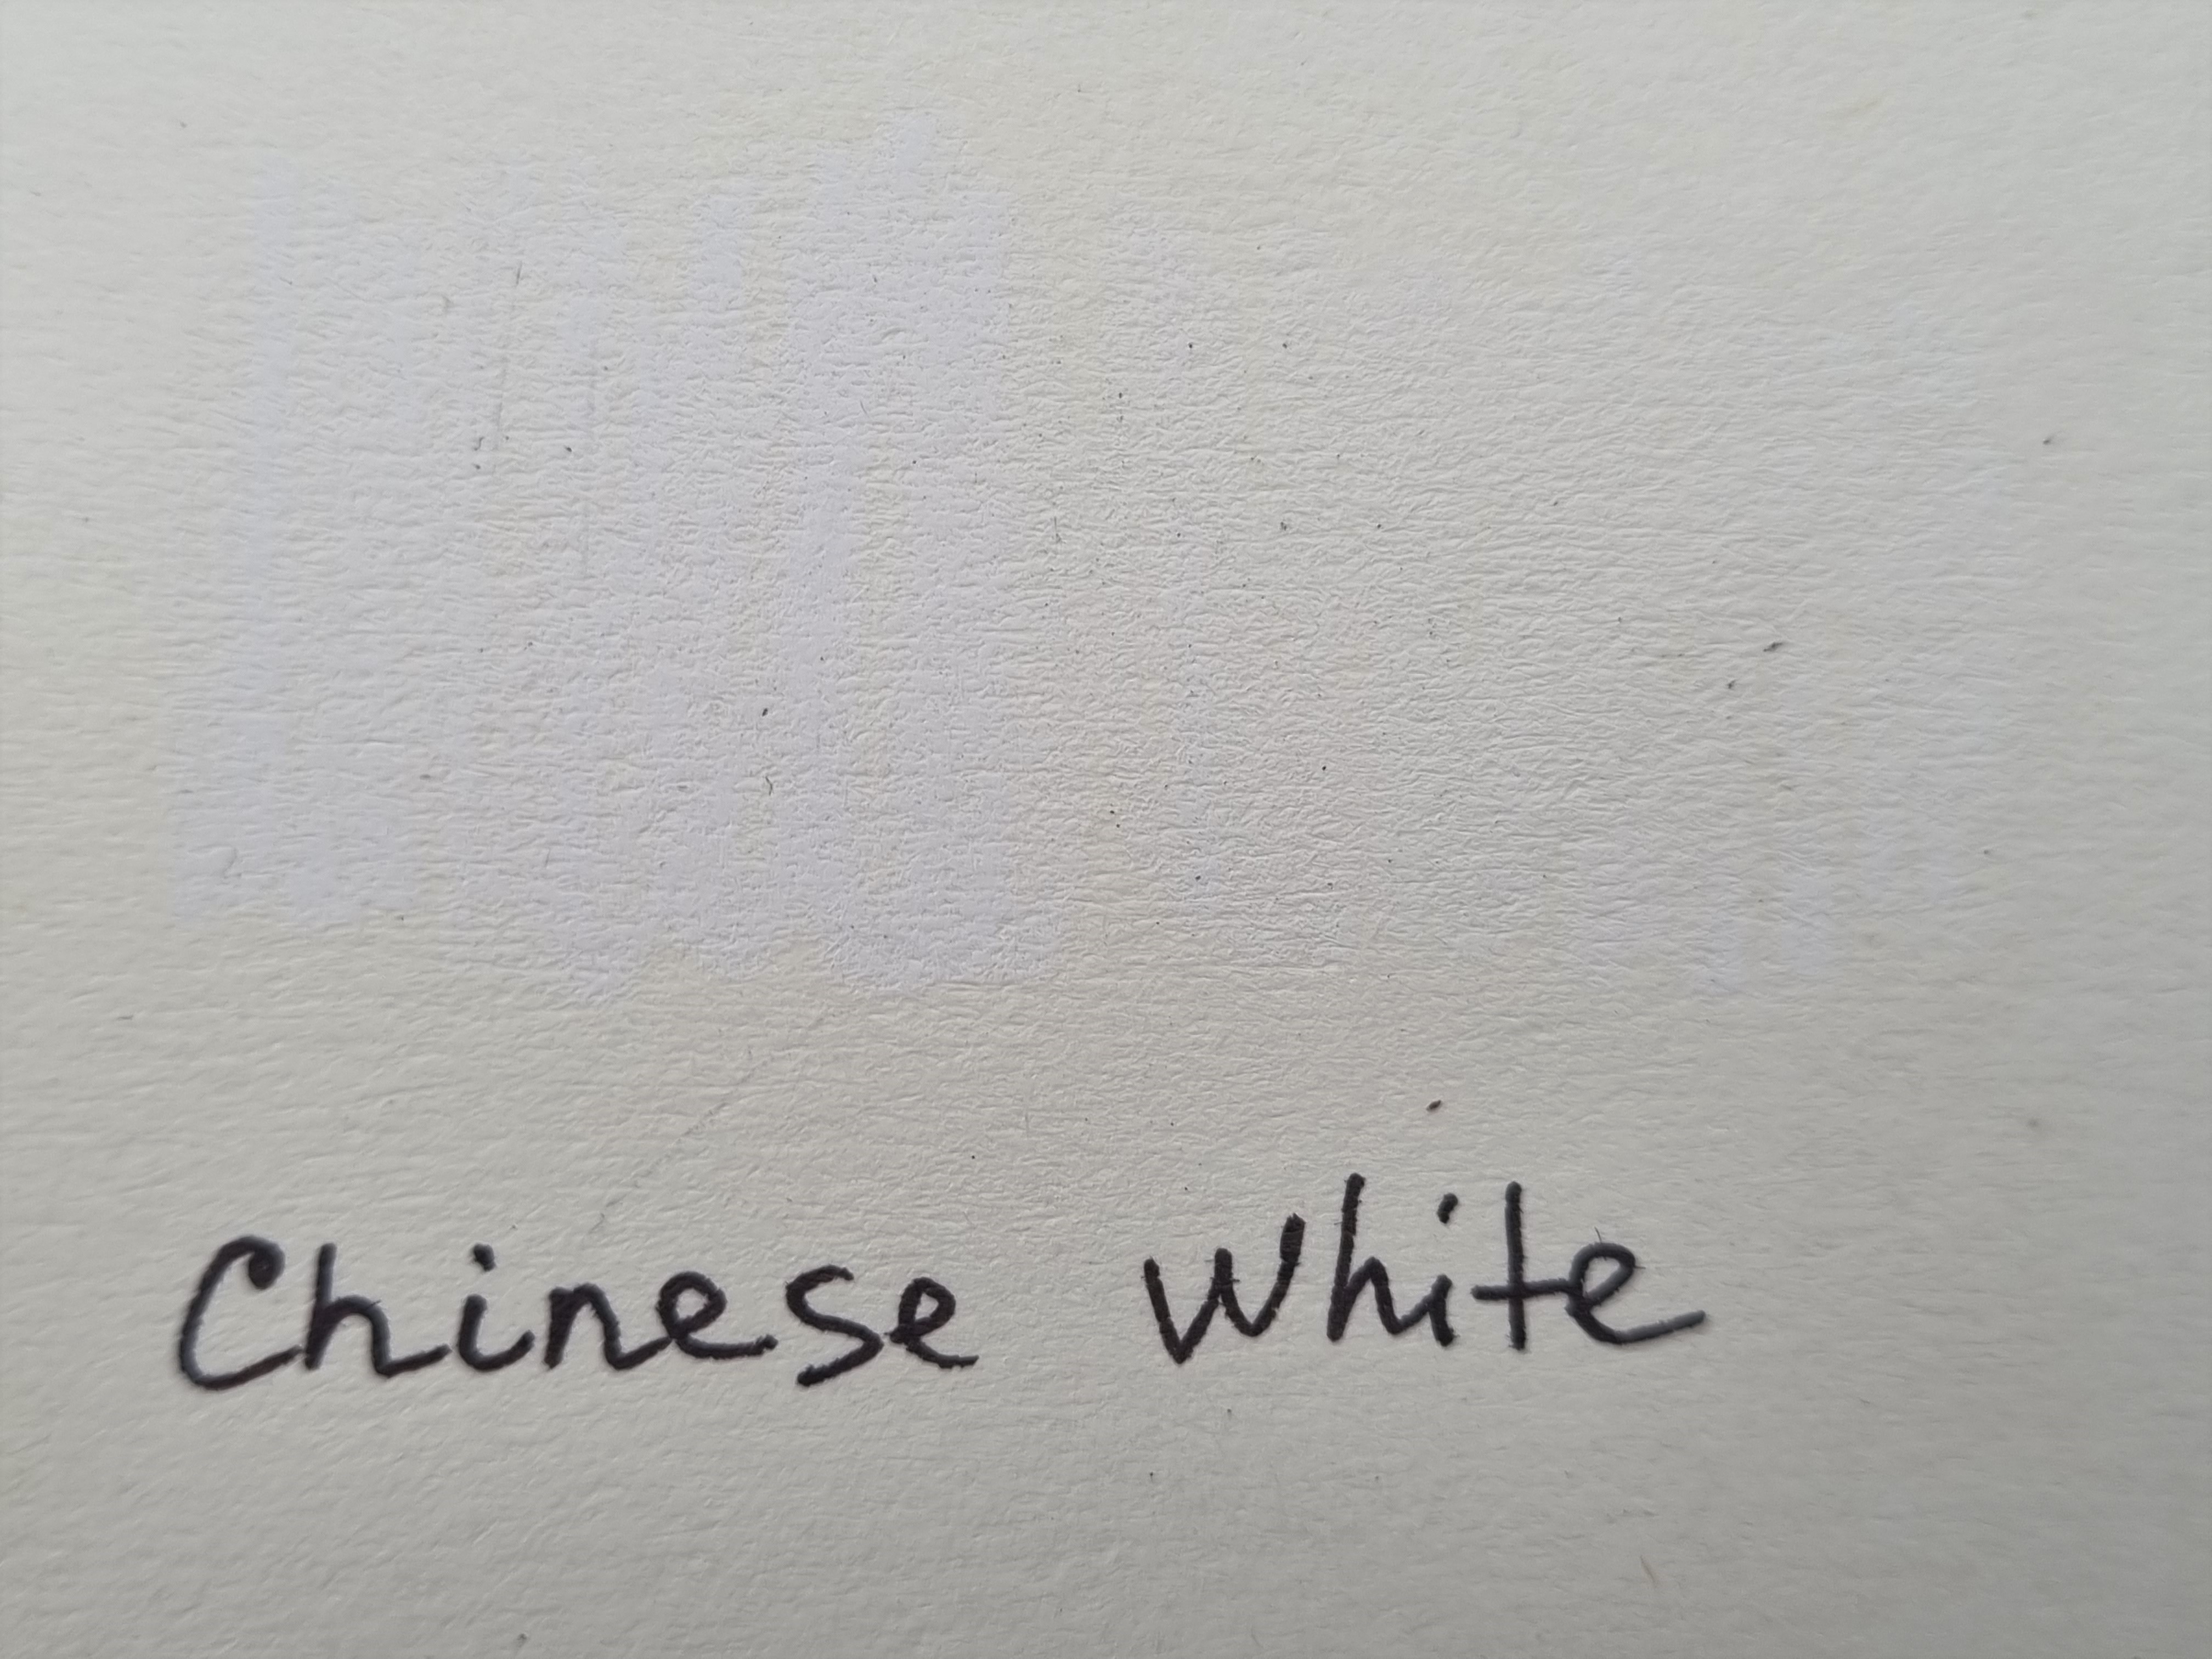 Chinese White